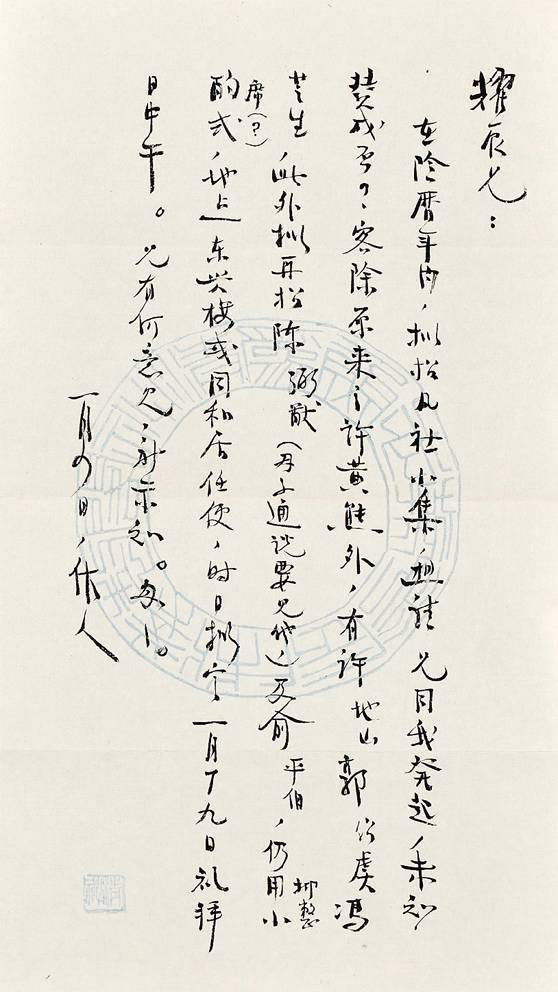 耀辰兄：
在陰暦年内，拟招凡社小集，想请兄同我発起，未知
赞成否？客除原来之许黄熊外，有许地山郭绍虞冯
芝生，此外拟再招陈（通说要见他）及俞平伯，仍用小
抑整
席（？）
酌式，地点东兴楼或同和居任便，时日拟定一月十九日礼拜
日中午。兄有何意见，示知。匆匆。
一月四日，作人